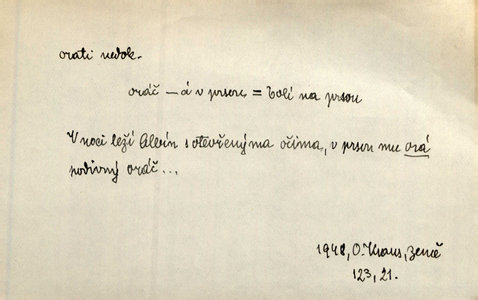 orati nedok.
oráč – á v prsou = bolí na prsou
V noci leží Albín s otevřenýma očima, v prsou mu orá
podivný oráč...
1948, O. Kraus, Země
123, 21.